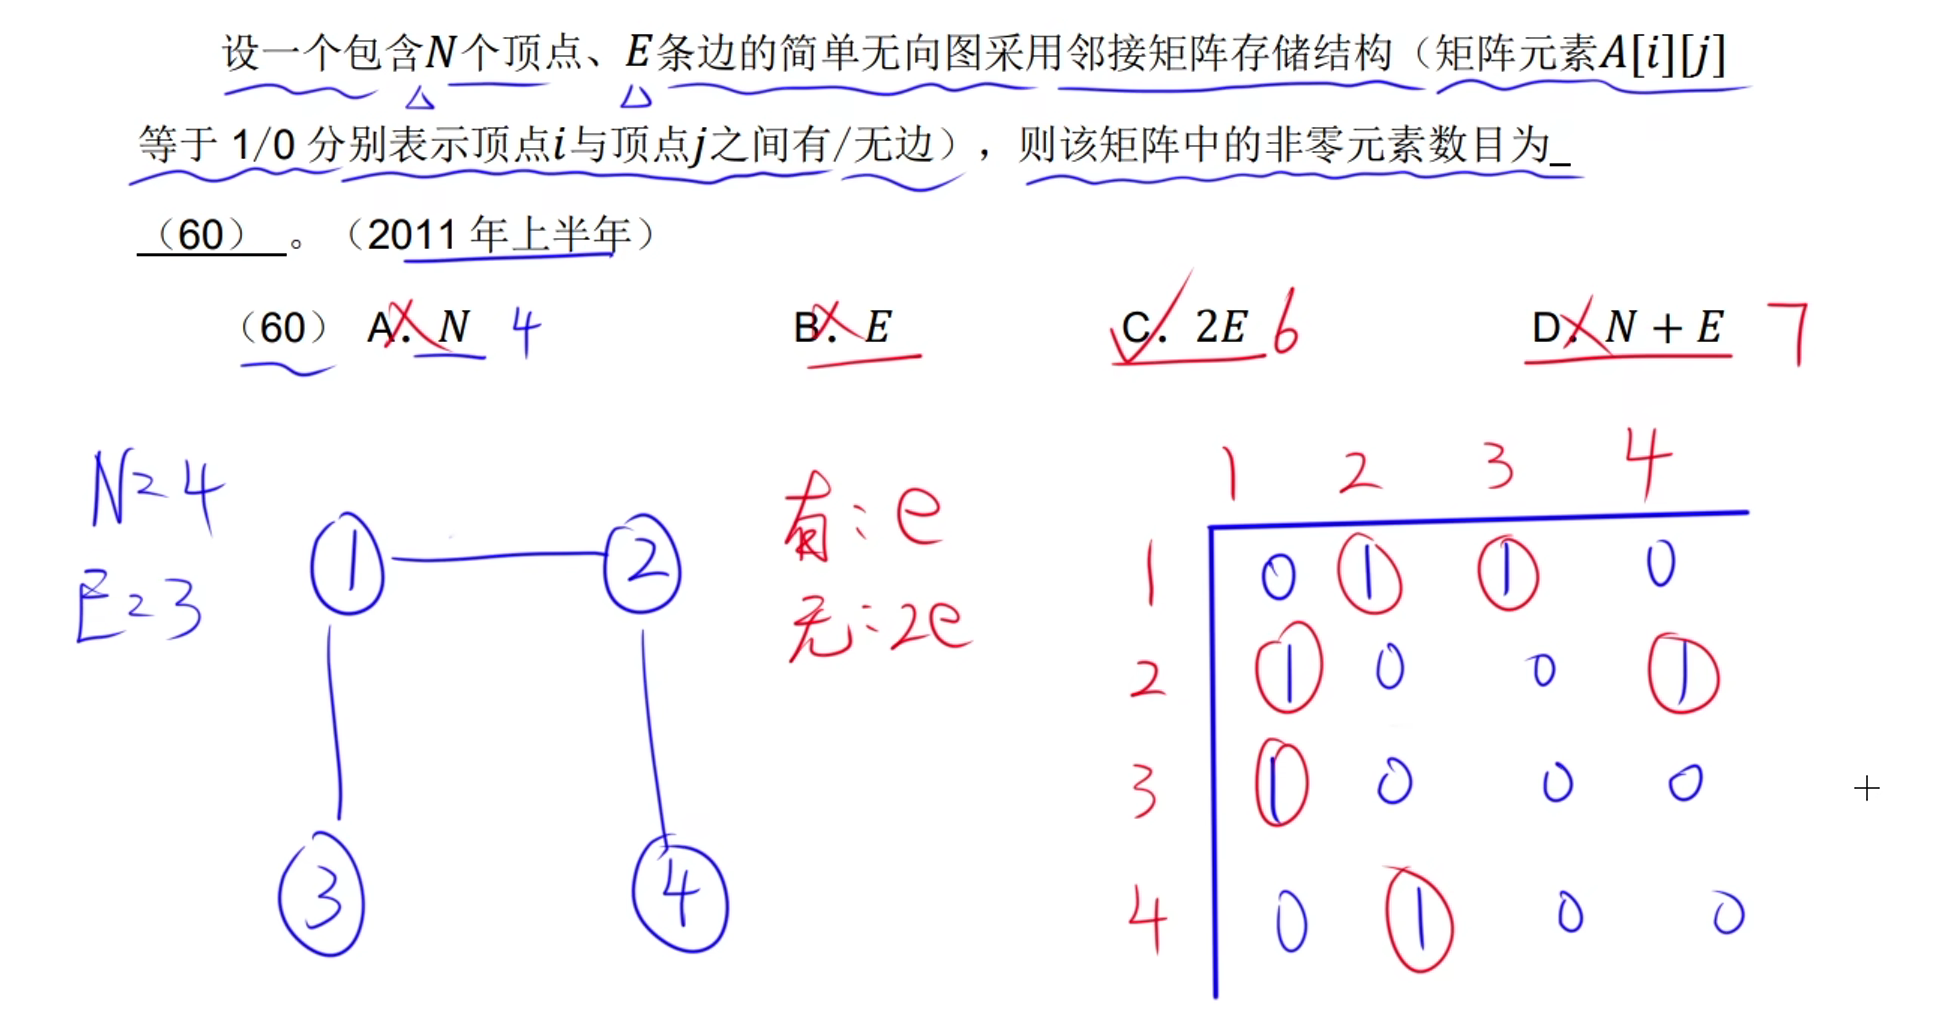 设一个包含N个顶点、E条边的简单无向图采用邻接矩阵存储结构（矩阵元素A[i][j]
等于 1/0 分别表示顶点i与顶点j之间有/无边），则该矩阵中的非零元素数目为_
（60）。（2011 年上半年）
（60） A. N 4 B. E C. 2E 6 D. N + E 7
N=4
E=3
1 2
3 4
有: e
无: 2e
1 2 3 4
1 0 1 1 0
2 1 0 0 1
3 1 0 0 0
4 0 1 0 0